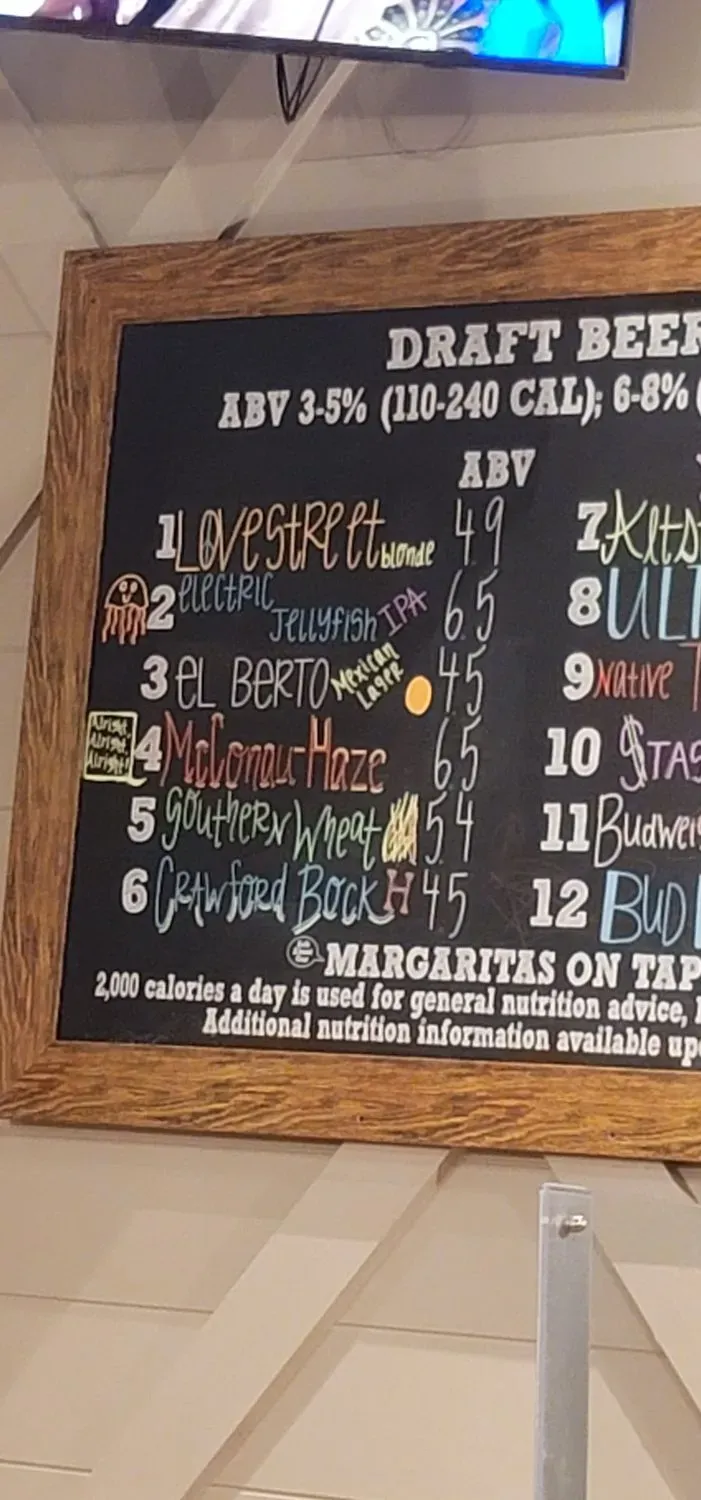 DRAFT BEER
ABV 3-5% (110-240 CAL); 6-8%
ABV
1 LOVEStREEt blonde 4.9
2 ELECTRIC JELLYFISH IPA 6.5
3 EL BERTO Mexican Lager 4.5
Alright, Alright, Alright!
4 McConau-Haze 6.5
5 Southern Wheat 5.4
6 CRAWford Bock H 4.5
7
8 ULT
9 Native T
10 $TAS
11 Budwei
12 BUD
MARGARITAS ON TAP
2,000 calories a day is used for general nutrition advice,
Additional nutrition information available up